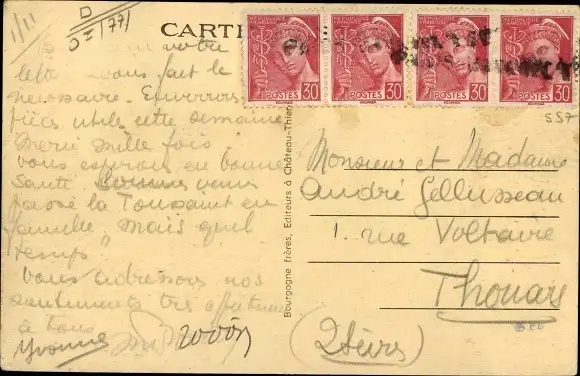 1/11
D
0=1771
CARTE
RÉPUBLIQUE FRANÇAISE
RÉPUBLIQUE FRANÇAISE
RÉPUBLIQUE FRANÇAISE
RÉPUBLIQUE FRANÇAISE
POSTES 30
POSTES 30
POSTES 30
POSTES 30
557
votre
lettre vous fait le
nécessaire. Enverrons
utiles cette semaine
Merci mille fois
vous espérons en bonne
santé
passé la Toussaint en
famille, mais quel
temps
Vous adressons nos
sentiments très
à tous
Yvonne
20001
Bourgogne frères, Editeurs à Château-Thierry
Monsieur et Madame
André Gellusseau
1. rue Voltaire
Thouars
(2 Sèvres)